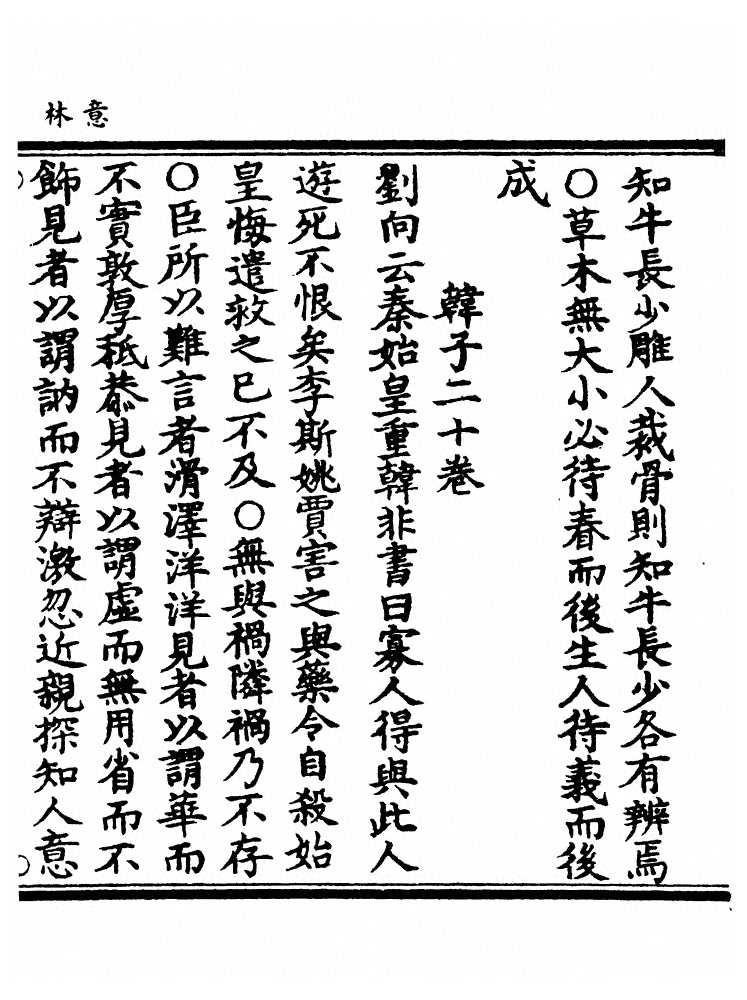 意林
知牛長少雕人裁骨則知牛長少各有辨焉
○草木無大小必待春而後生人待義而後
成
韓子二十卷
劉向云秦始皇重韓非書曰寡人得與此人
遊死不恨矣李斯姚賈害之與藥令自殺始
皇悔遣救之已不及○無與禍隣禍乃不存
○臣所以難言者滑澤洋洋見者以謂華而
不實敦厚秖恭見者以謂虛而無用省而不
飾見者以謂訥而不辯激忽近親探知人意